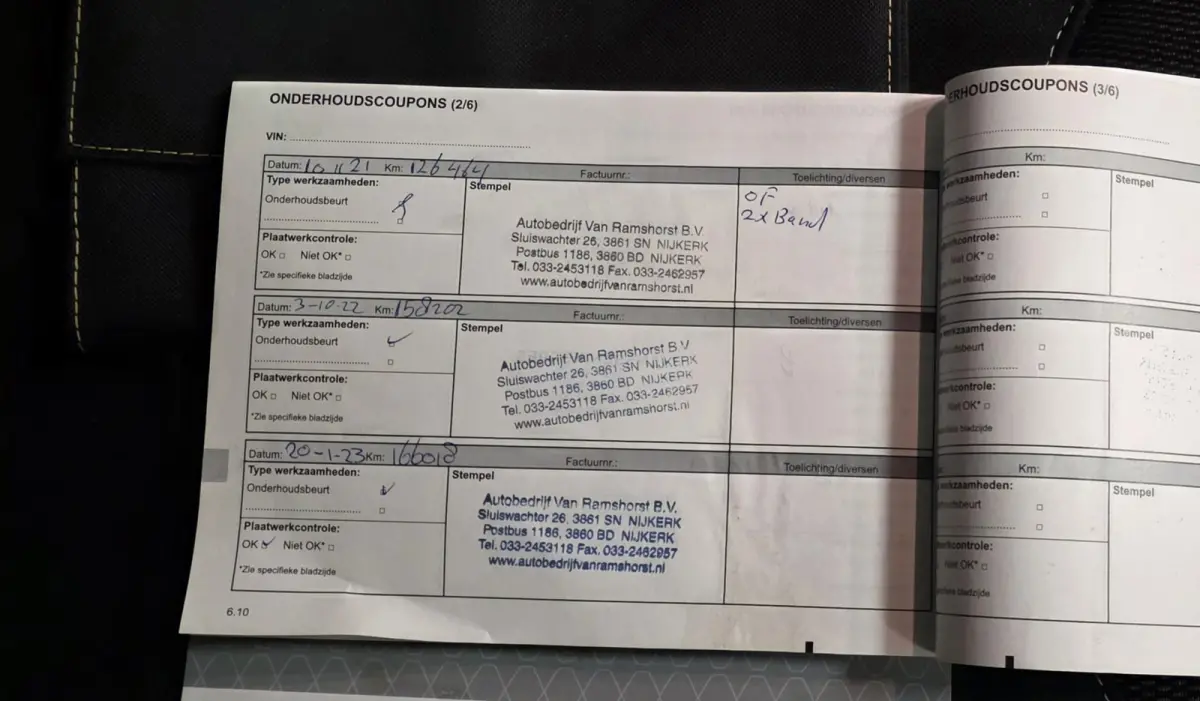 ONDERHOUDSCOUPONS (2/6)
VIN:
Datum: 10 11 21 Km: 126464 Factuurnr.: Toelichting/diversen
Type werkzaamheden:
Onderhoudsbeurt
Plaatwerkcontrole:
OK Niet OK*
*Zie specifieke bladzijde
Stempel
Autobedrijf Van Ramshorst B.V.
Sluiswachter 26, 3861 SN NIJKERK
Postbus 1186, 3860 BD NIJKERK
Tel. 033-2453118 Fax. 033-2462957
www.autobedrijfvanramshorst.nl
OF
2x Band
Datum: 3-10-22 Km: 158202 Factuurnr.: Toelichting/diversen
Type werkzaamheden:
Onderhoudsbeurt
Plaatwerkcontrole:
OK Niet OK*
*Zie specifieke bladzijde
Stempel
Autobedrijf Van Ramshorst B.V
Sluiswachter 26, 3861 SN NIJKERK
Postbus 1186, 3860 BD NIJKERK
Tel. 033-2453118 Fax. 033-2462957
www.autobedrijfvanramshorst.nl
Datum: 20-1-23 Km: 166018 Factuurnr.: Toelichting/diversen
Type werkzaamheden:
Onderhoudsbeurt
Plaatwerkcontrole:
OK Niet OK*
*Zie specifieke bladzijde
Stempel
Autobedrijf Van Ramshorst B.V.
Sluiswachter 26, 3861 SN NIJKERK
Postbus 1186, 3860 BD NIJKERK
Tel. 033-2453118 Fax. 033-2462957
www.autobedrijfvanramshorst.nl
6.10
ERHOUDSCOUPONS (3/6)
Km:
werkzaamheden:
houdsbeurt
Stempel
controle:
Niet OK*
specifieke bladzijde
Km:
werkzaamheden:
houdsbeurt
Stempel
kcontrole:
Niet OK*
specifieke bladzijde
Km:
werkzaamheden:
houdsbeurt
Stempel
kcontrole:
Niet OK*
specifieke bladzijde